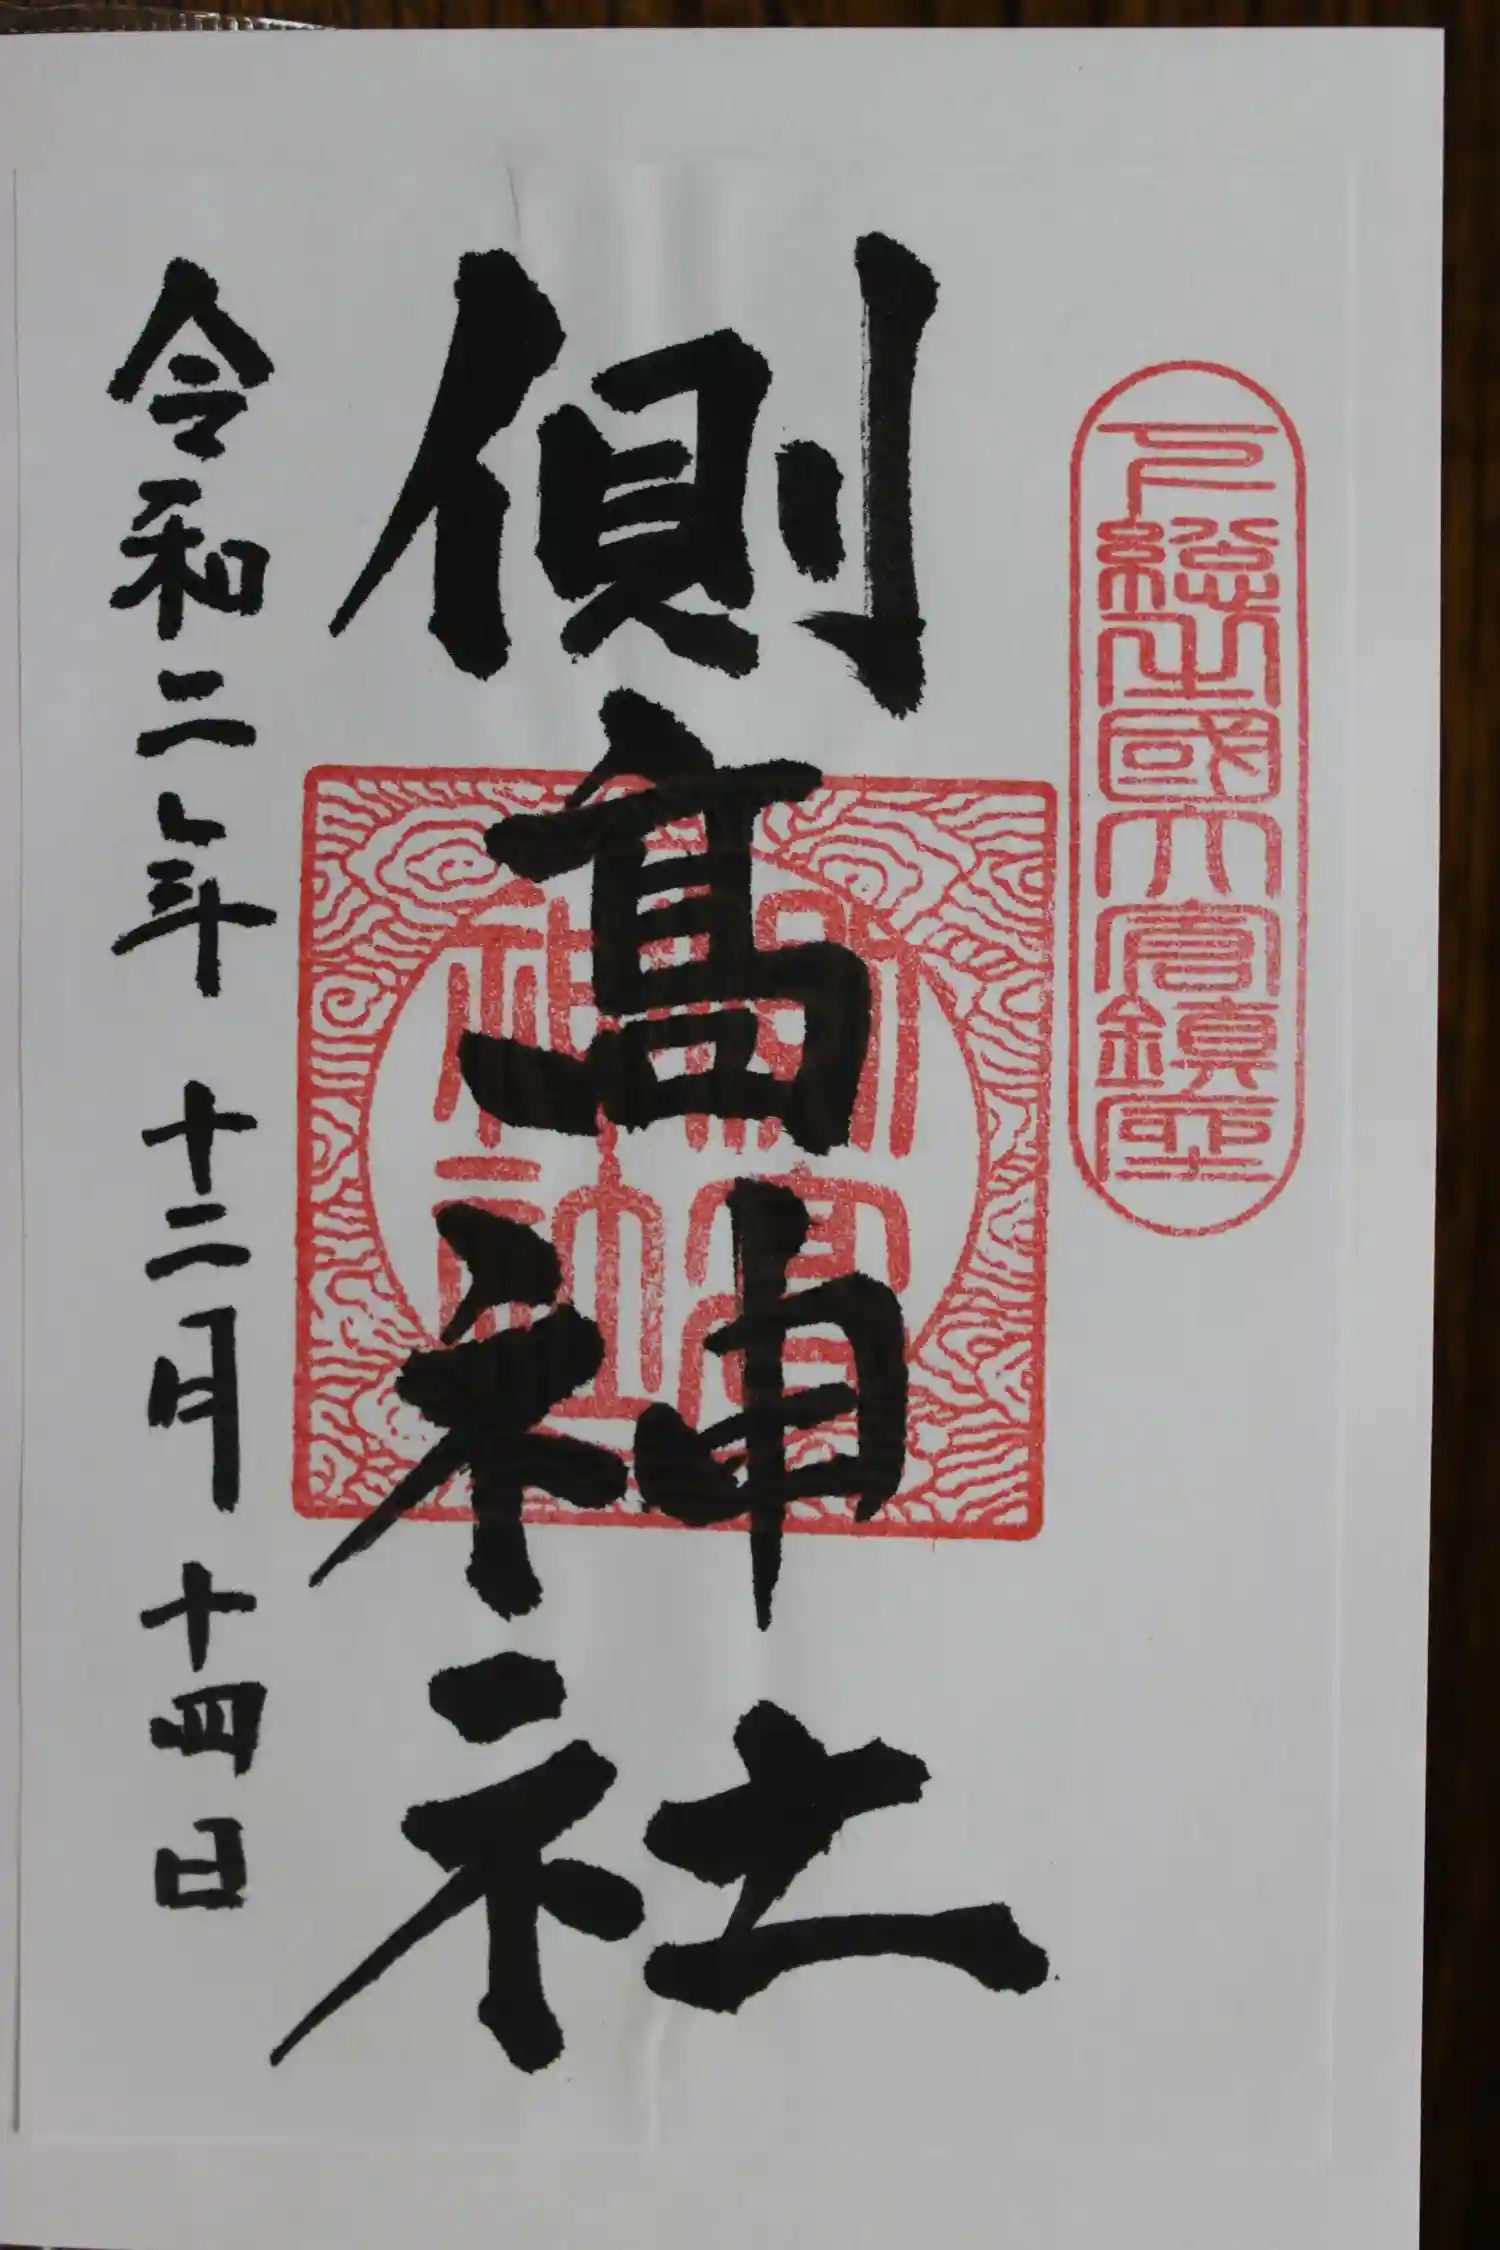 下総山國大倉鎮座
側髙神社
側高神社
令和二年 十二月 十四日